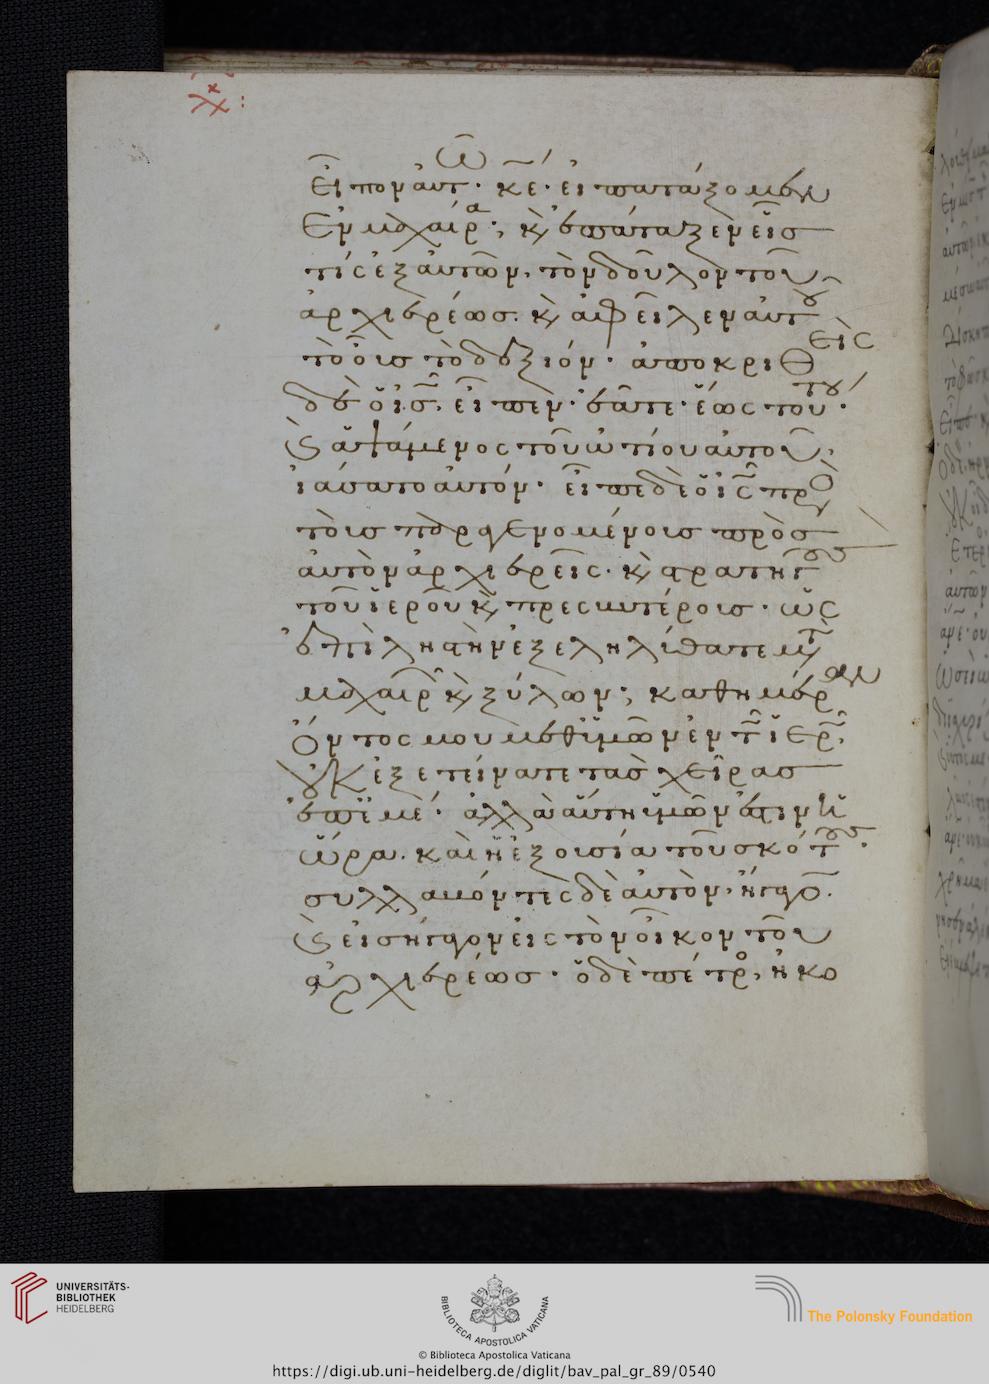 εἶπον αὐτῶ· κε̅· εἰ πατάξομεν
ἐν μαχαίρα; κ(αὶ) ἐπάταξεν εἷσ
τίς ἐξ αὐτῶν, τὸν δοῦλον τοῦ
ἀρχιερέωσ. κ(αὶ) ἀφεῖλεν αὐτοῦ
τὸ οὖς τὸ δεξιόν· ἀποκριθεὶς
δὲ ὁ ις̅, εἶπεν· ἐᾶτε ἕως τούτου·
κ(αὶ) ἁψάμενος τοῦ ὠτίου αὐτοῦ,
ἰάσατο αὐτόν· εἶπε δὲ ὁ ις̅ πρὸς
τοὺσ παραγενομένουσ πρὸσ
αὐτὸν ἀρχιερεῖς· κ(αὶ) στρατηγοὺς
τοῦ ἱεροῦ κ(αὶ) πρεσβυτέρους· ὡς
ἐπὶ ληστὴν ἐξεληλύθατε μετὰ
μαχαιρῶν κ(αὶ) ξύλων; καθημέραν
ὄντος μου μεθ' ὑμῶν ἐν τῶ ἱερῶ,
οὐκ ἐξετείνατε τὰσ χεῖρασ
ἐπ' ἐμέ· ἀλλ' αὕτη ὑμῶν ἐστιν ἡ
ὥρα. καὶ ἡ ἐξουσία τοῦ σκότους·
συλλαβόντες δὲ αὐτὸν, ἤγαγον.
κ(αὶ) εἰσήγαγον εἰς τὸν οἶκον τοῦ
ἀρχιερέωσ· ὁ δὲ πέτρος, ἠκο
UNIVERSITÄTS-
BIBLIOTHEK
HEIDELBERG
BIBLIOTECA APOSTOLICA VATICANA
The Polonsky Foundation
© Biblioteca Apostolica Vaticana
https://digi.ub.uni-heidelberg.de/diglit/bav_pal_gr_89/0540